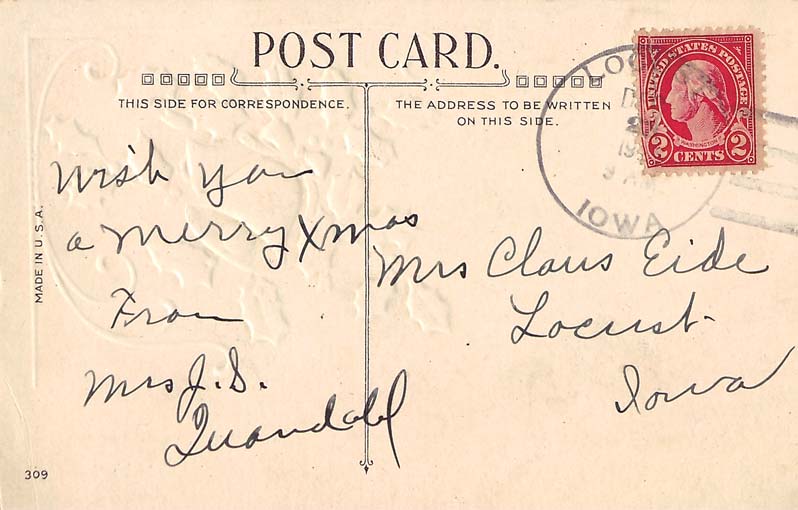 POST CARD.
THIS SIDE FOR CORRESPONDENCE.
THE ADDRESS TO BE WRITTEN
ON THIS SIDE.
Wish you
a Merry Xmas
From
Mrs J. S.
Quandahl
Mrs Claus Eide
Locust
Iowa
MADE IN U.S.A.
309
UNITED STATES POSTAGE
WASHINGTON
2 CENTS 2
IOWA